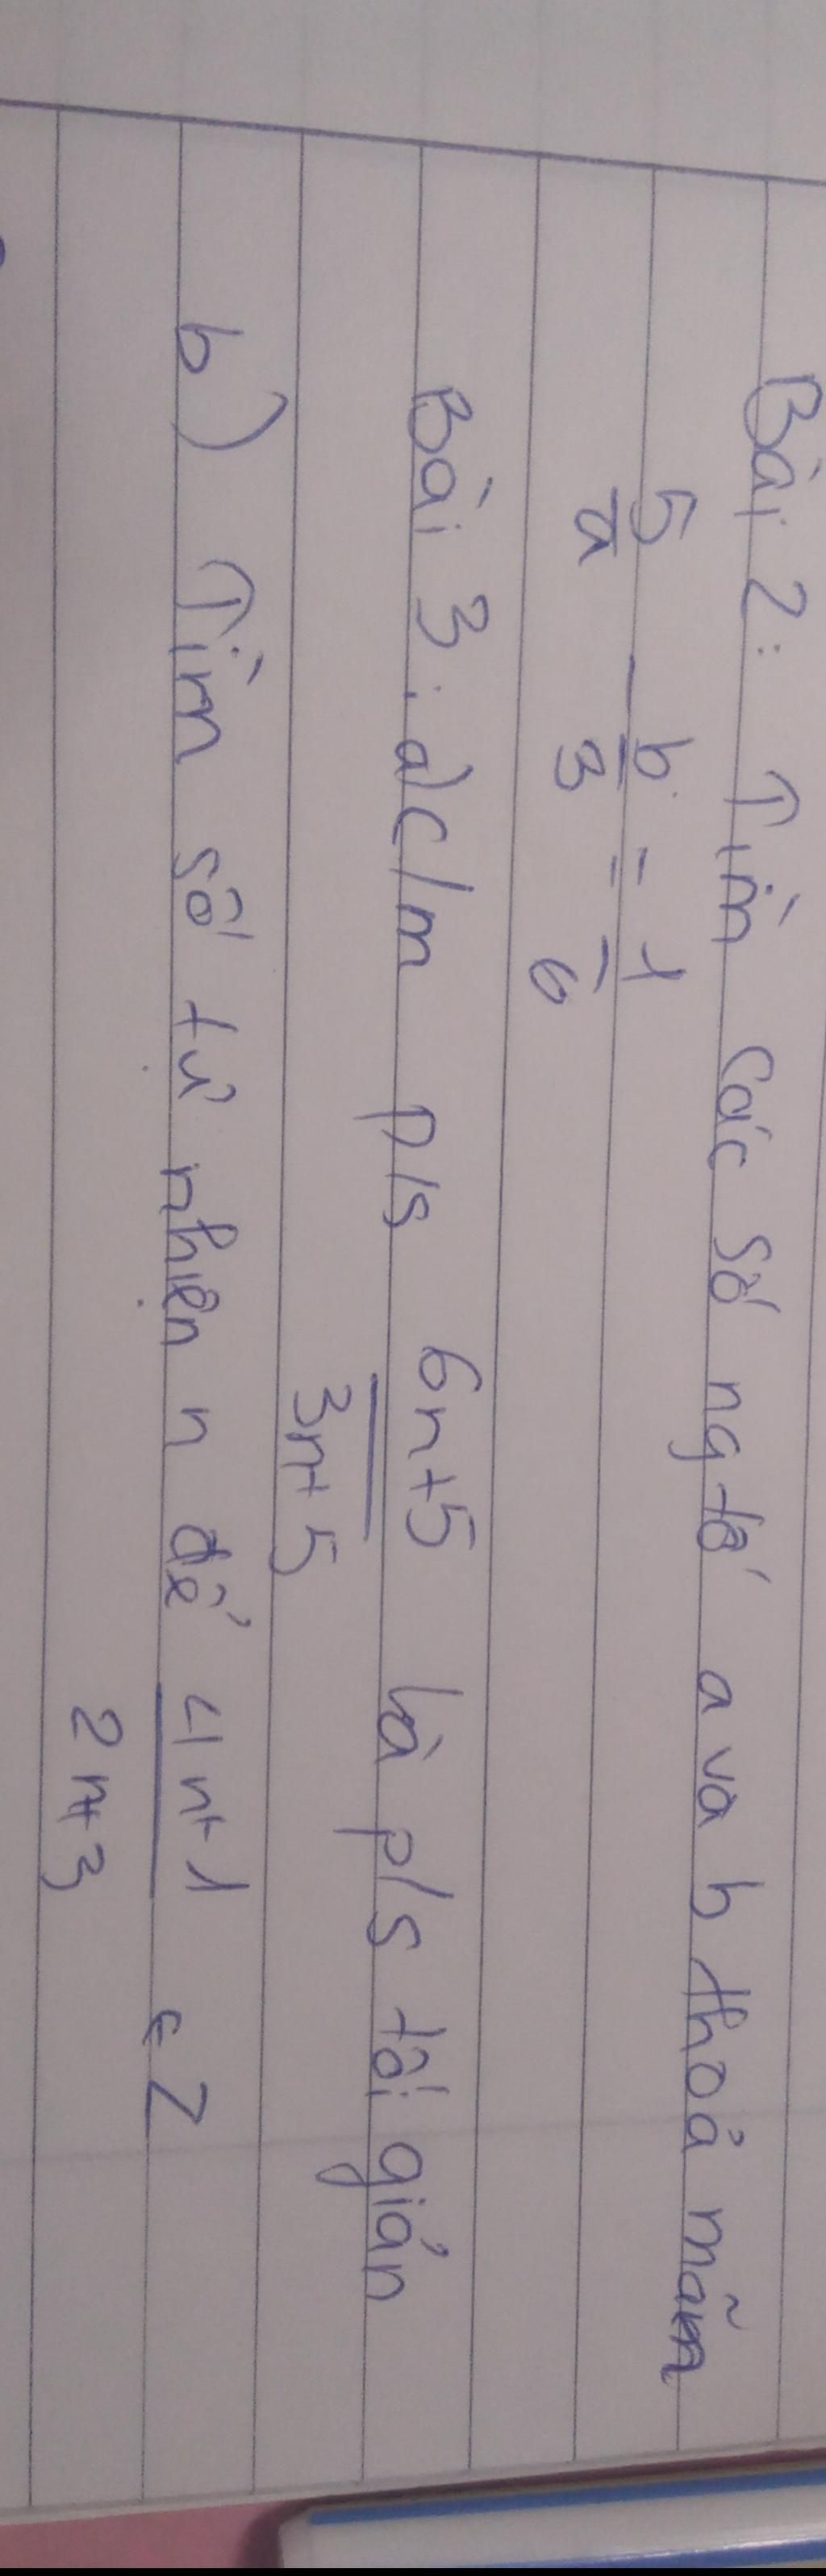 Bài 2: Tìm các số ng tố a và b thoả mãn
5/a - b/3 = 1/6
Bài 3: a) c/m p/s 6n+5/3n+5 là p/s tối giản
b) Tìm số tự nhiên n để 4n+1/2n+3 ∈ Z